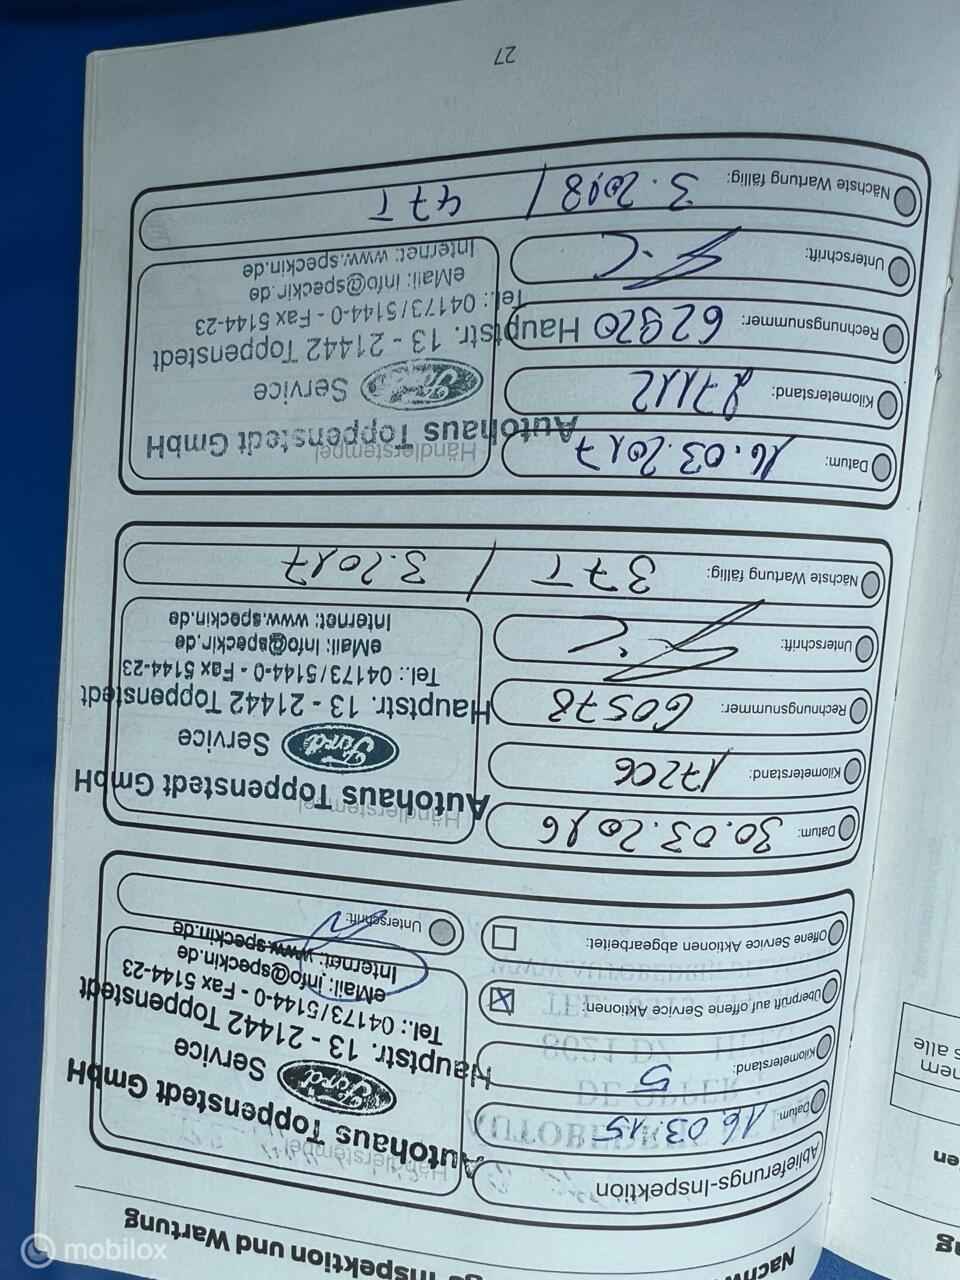 Inspektion und Wartung
Ablieferungs-Inspektion
Datum: 16.03.15
Kilometerstand: 5
Überprüft auf offene Service Aktionen: X
Offene Service Aktionen abgearbeitet:
Händlerstempel
Autohaus Toppenstedt GmbH
Ford Service
Hauptstr. 13 - 21442 Toppenstedt
Tel.: 04173/5144-0 - Fax 5144-23
eMail: info@speckin.de
Internet: www.speckin.de
Unterschrift:
Datum: 30.03.2016
Kilometerstand: 17206
Rechnungsnummer: 60578
Unterschrift:
Händlerstempel
Autohaus Toppenstedt GmbH
Ford Service
Hauptstr. 13 - 21442 Toppenstedt
Tel.: 04173/5144-0 - Fax 5144-23
eMail: Info@speckin.de
Internet: www.speckin.de
Nächste Wartung fällig: 37 T / 3.2017
Datum: 16.03.2017
Kilometerstand: 27112
Rechnungsnummer: 62920
Unterschrift:
Händlerstempel
Autohaus Toppenstedt GmbH
Ford Service
Hauptstr. 13 - 21442 Toppenstedt
Tel.: 04173/5144-0 - Fax 5144-23
eMail: info@speckin.de
Internet: www.speckin.de
Nächste Wartung fällig: 3.2018 / 47 T
27
s alle
mobilox